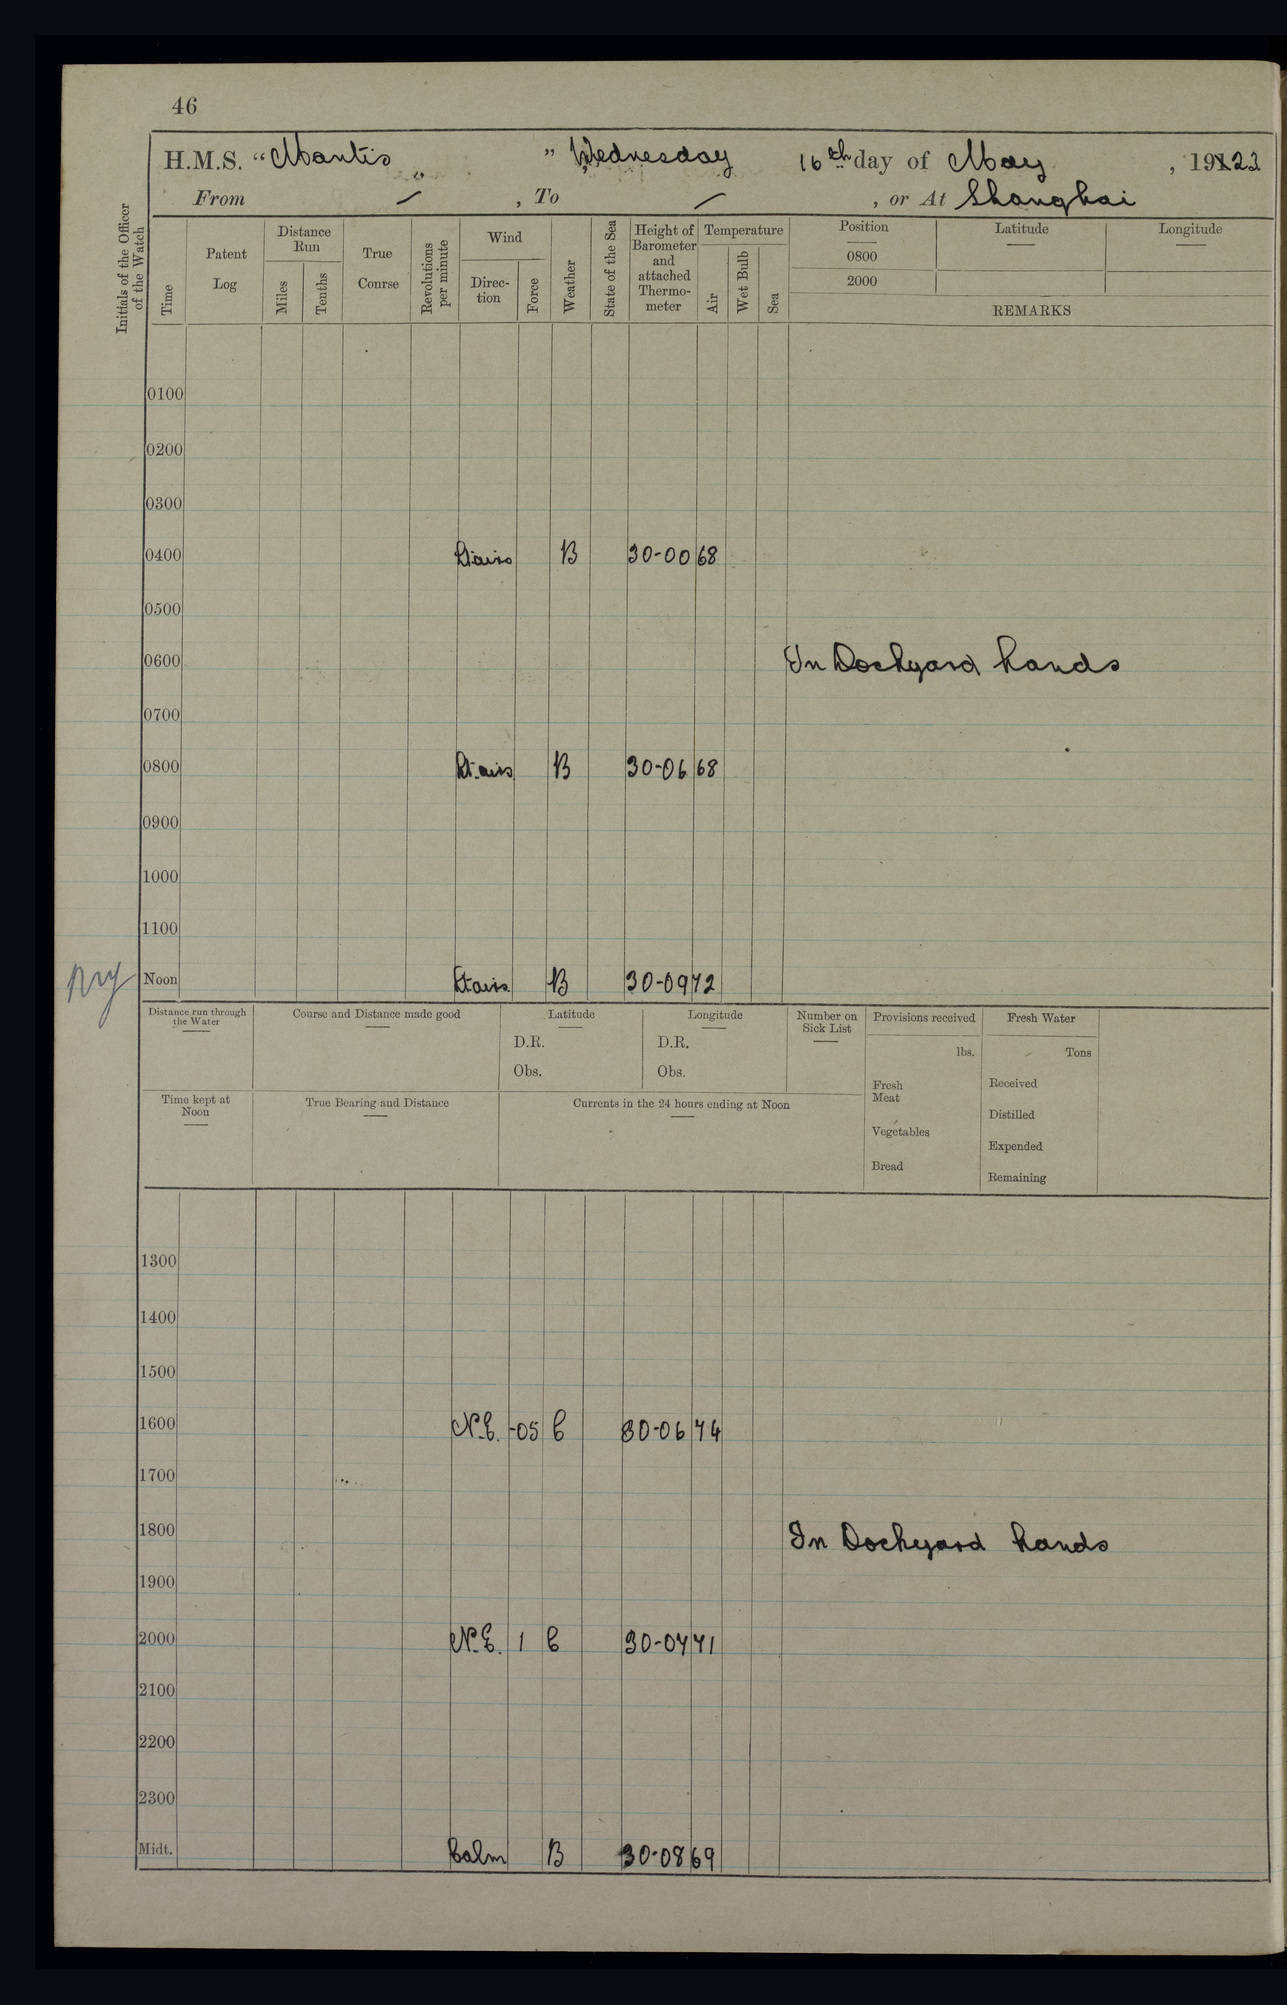 46
H.M.S. "Mantis" Wednesday 16th day of May, 1923
From — , To — , or At Shanghai
Initials of the Officer of the Watch
Time
Patent Log
Distance Run
Miles
Tenths
True Course
Revolutions per minute
Wind
Direction
Force
Weather
State of the Sea
Height of Barometer and attached Thermometer
Temperature
Air
Wet Bulb
Sea
Position
Latitude
Longitude
0800
2000
REMARKS
0100
0200
0300
0400 Lt airs B 30-00 68
0500
0600 In Dockyard hands
0700
0800 Lt. airs B 30-06 68
0900
1000
1100
Noon Lt airs B 30-09 72
Distance run through the Water
Course and Distance made good
Latitude
D.R.
Obs.
Longitude
D.R.
Obs.
Number on Sick List
Provisions received
lbs.
Fresh Meat
Vegetables
Bread
Fresh Water
Tons
Received
Distilled
Expended
Remaining
Time kept at Noon
True Bearing and Distance
Currents in the 24 hours ending at Noon
1300
1400
1500
1600 N.E. -05 C 30-06 74
1700
1800 In Dockyard hands
1900
2000 N.E. 1 C 30-07 71
2100
2200
2300
Midt. Calm B 30-08 69